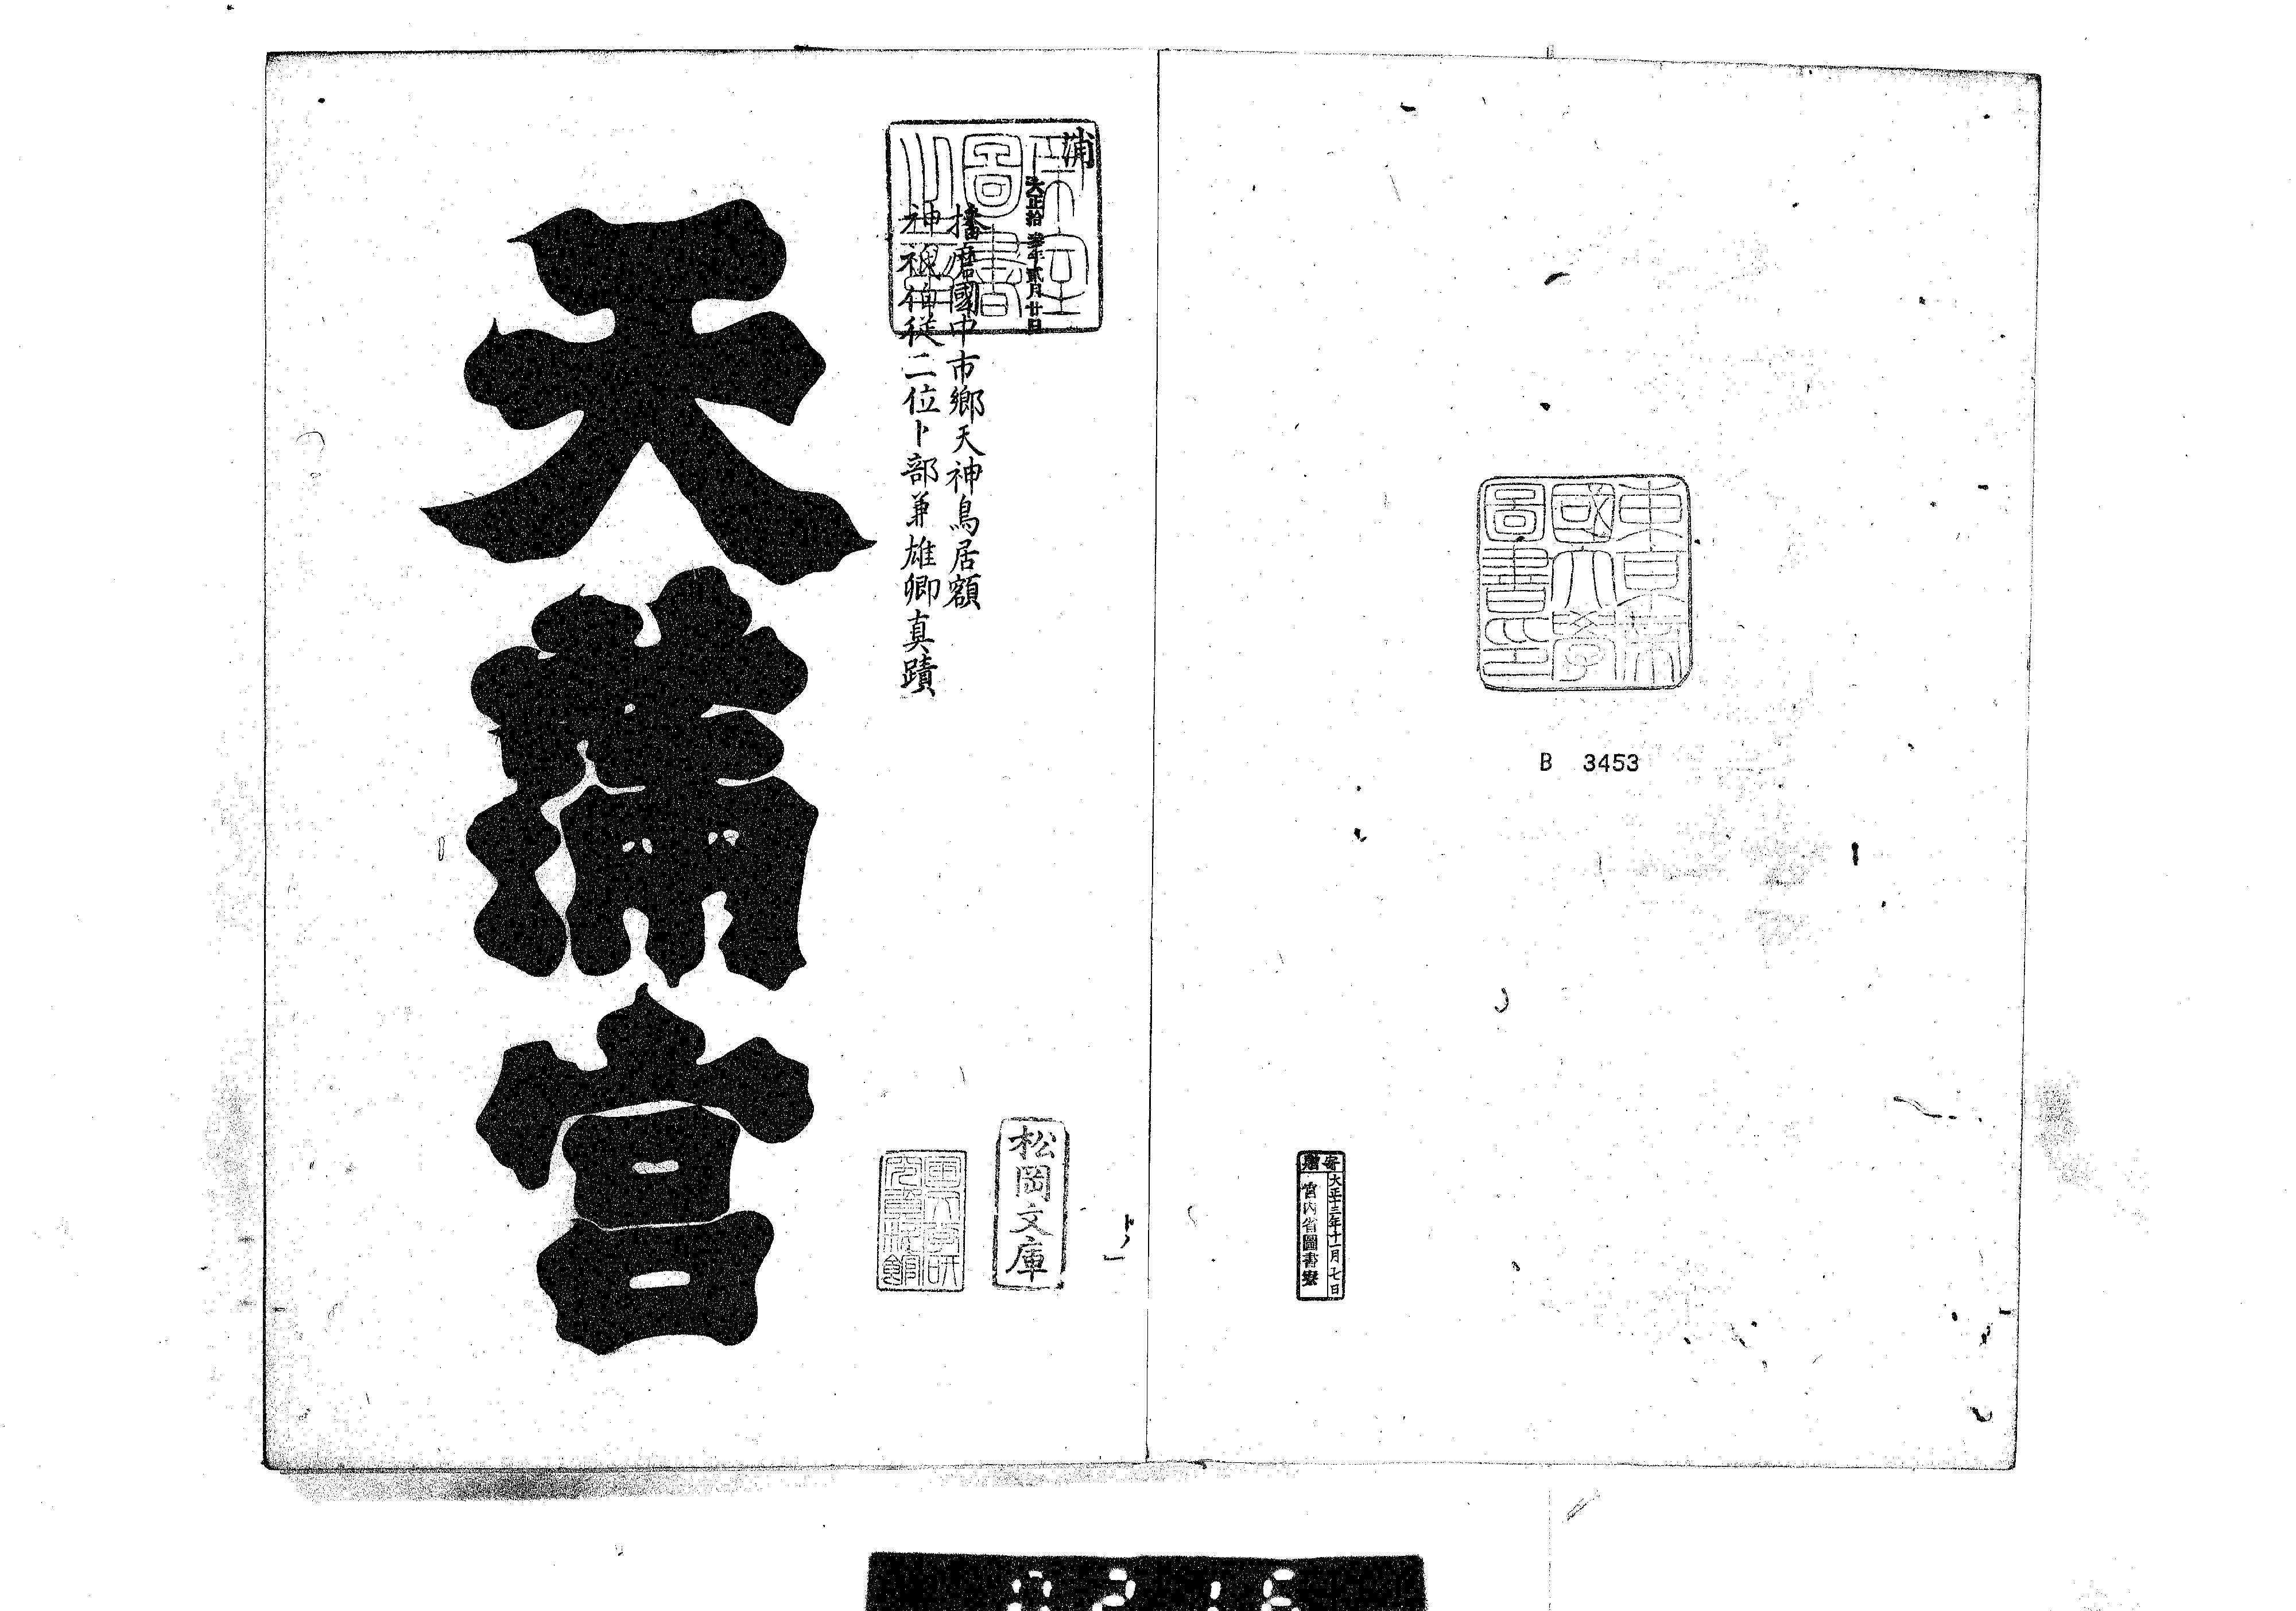 東京帝
國大學
圖書印
B 3453
寄贈
大正十三年十一月七日
宮内省圖書寮
帝室
圖書
大正拾參年貳月廿日
播磨國中市鄉天神鳥居額
神祇伯従二位卜部兼雄卿真蹟
松岡文庫
天滿宮